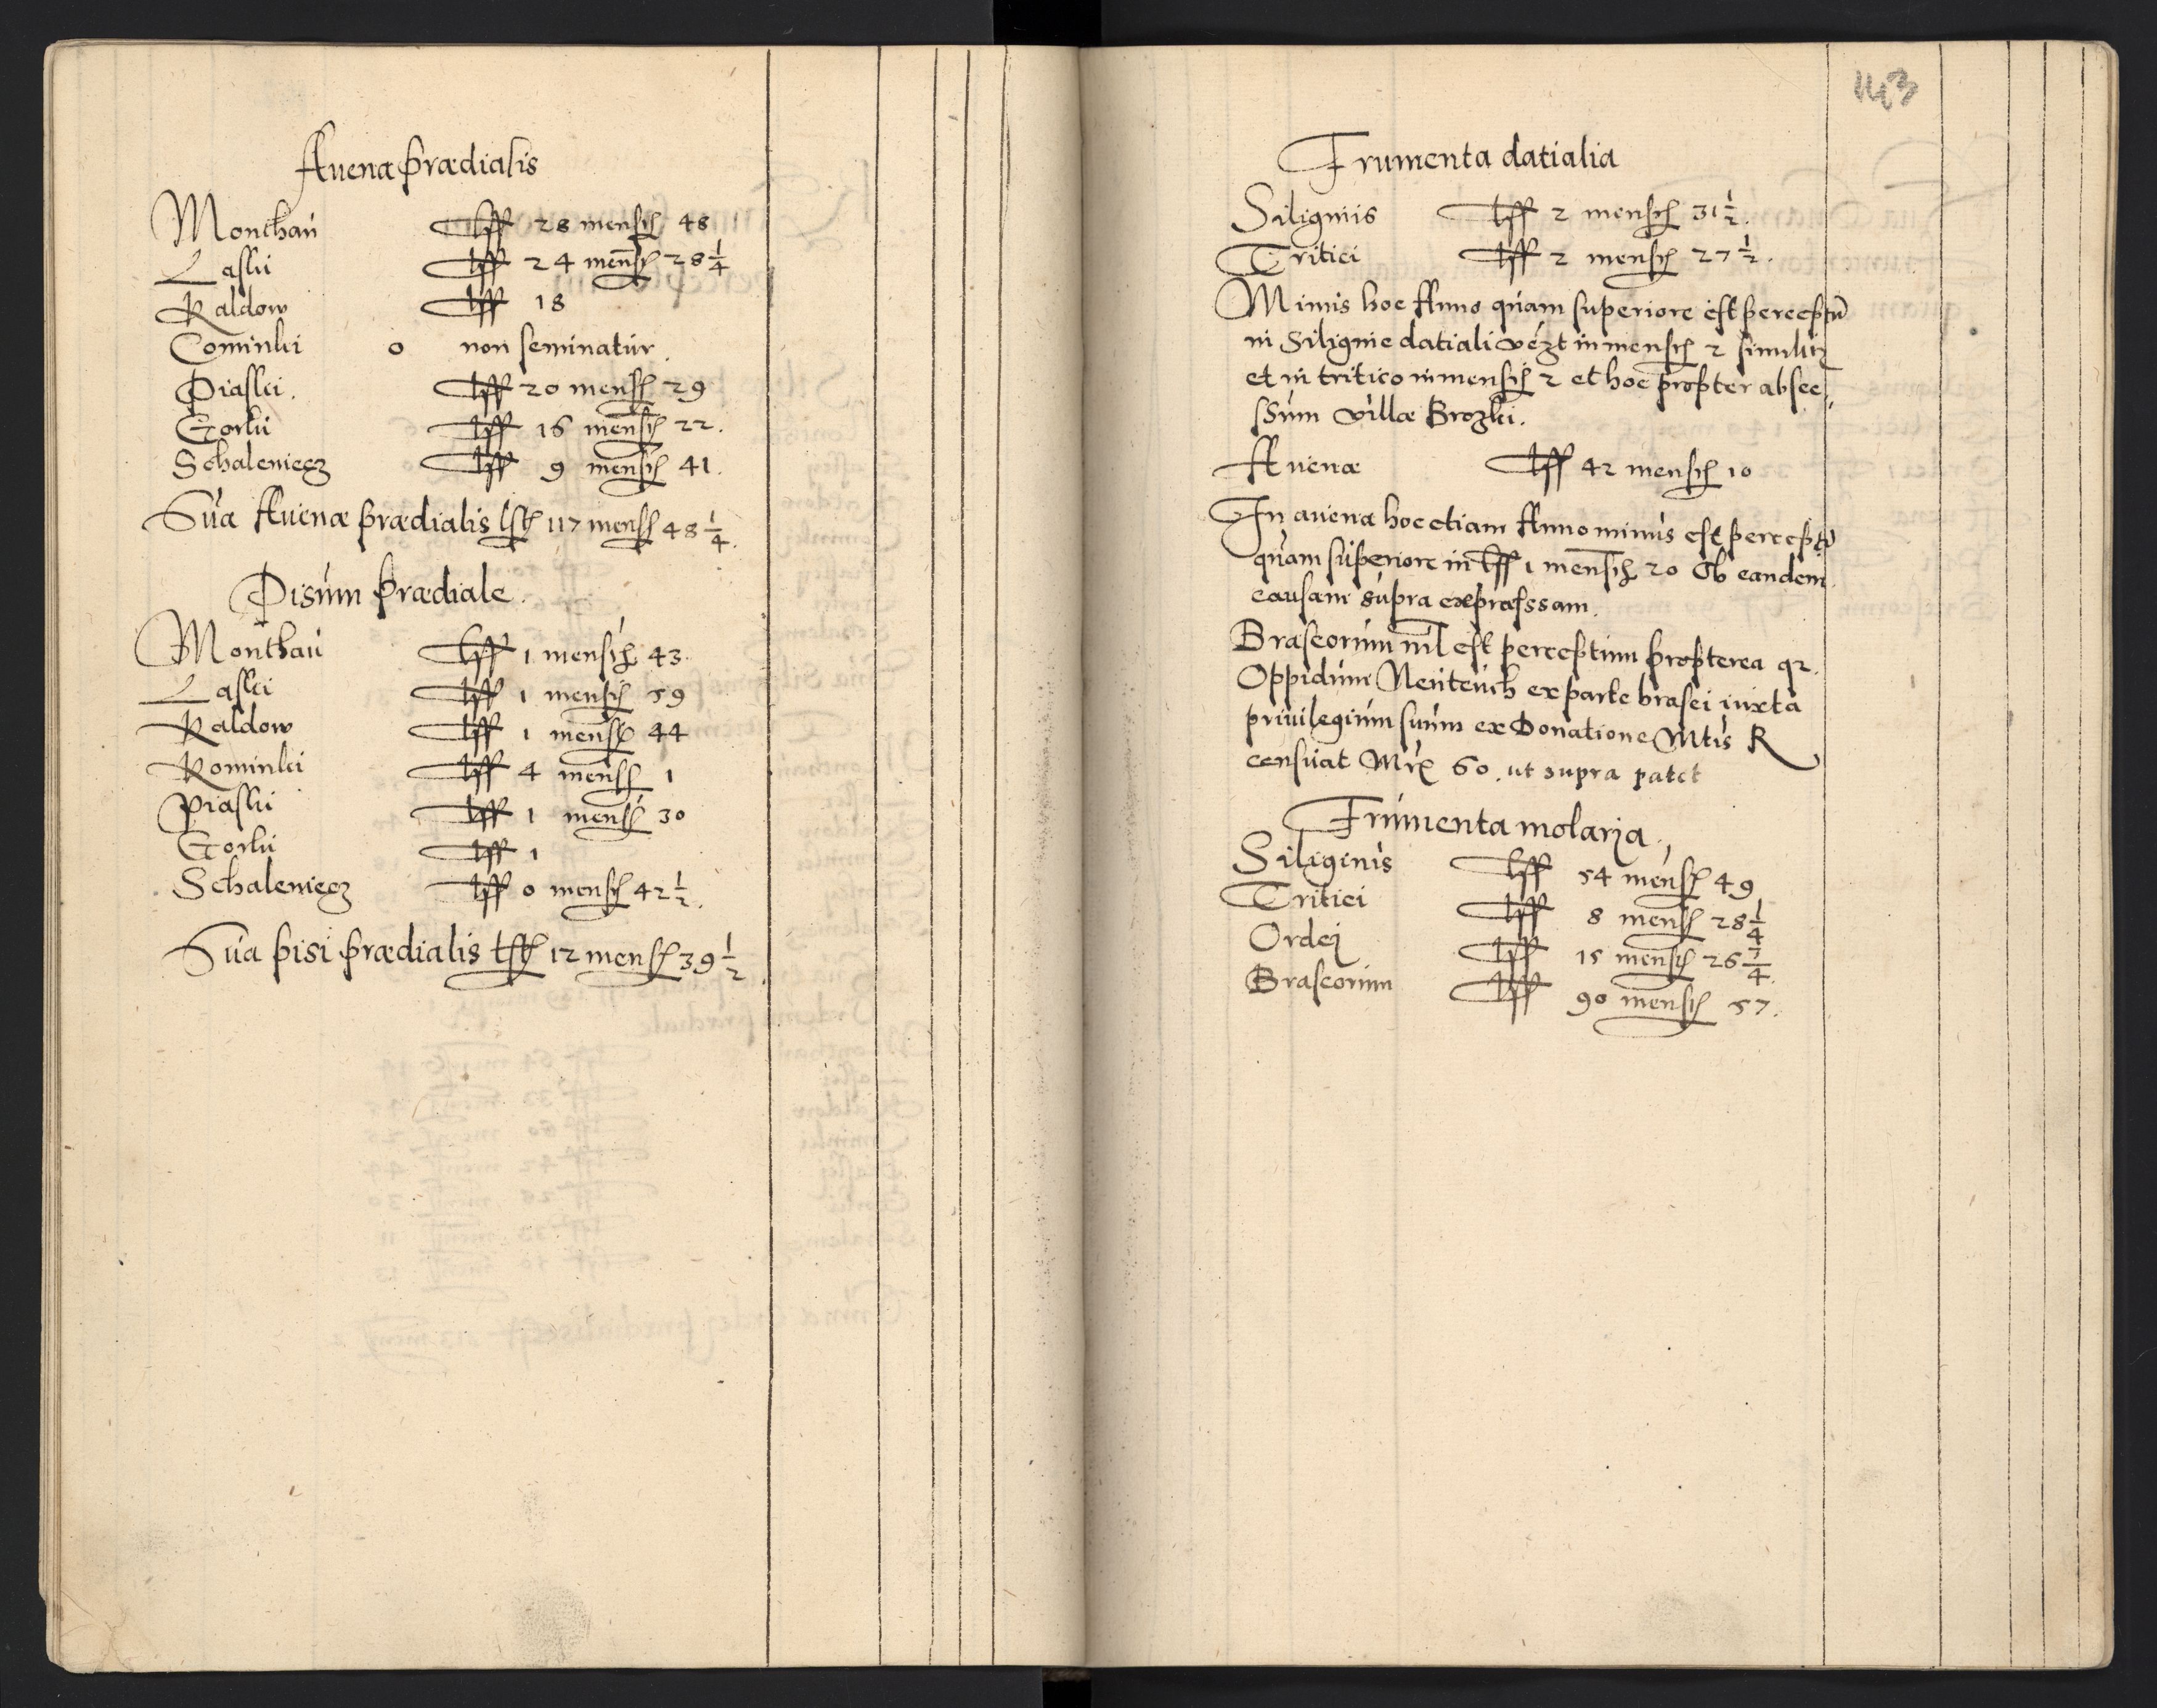 Auena prædialis
Monthaú lstſ 28 mensſ 48
Laski lstſ 24 mensſ 28 1/4
Kaldow lstſ 18
Cominki 0 non seminatúr.
Piaski. lstſ 20 mensſ 29
Gorki lstſ 16 mensſ 22.
Schaleniecz lstſ 9 mensſ 41.
Súa Auenæ prædialis lstſ 117 mensſ 48 1/4.
Pisúm prædiale.
Monthaú lstſ 1 mensſ 43.
Laski lstſ 1 mensſ 59
Kaldow lstſ 1 mensſ 44
Kominki lstſ 4 mensſ 1
Piaski lstſ 1 mensſ 30
Gorki lstſ 1
Schaleniecz lstſ 0 mensſ 42 1/2.
Súa pisi prædialis lstſ 12 mensſ 39 1/2.
143
Frumenta datialia
Siliginis lstſ 2 mensſ 31 1/2.
Tritici lstſ 2 mensſ 27 1/2.
Minús hoc Anno quam superiore est perceptū
in Siligine datiali vézt in mensſ 2 simlitr
et in tritico in mensſ 2 et hoc propter absce,
ssúm villæ Brozki.
Auenæ lstſ 42 mensſ 10
In auena hoc etiam Anno minús est perceptū
quam súperiore in lstſ 1 mensſ 20 Ob eandem
causam súpra expræssam.
Braseorúm nil est perceptúm propterea qz.
Oppidúm Neúteúch ex parte brasei iuxta
priuilegiúm súúm ex Donatione Mtis R
censúat Mrſ 60. ut supra patet
Frúmenta molaria.
Siliginis lstſ 54 mensſ 49
Tritici lstſ 8 mensſ 28 1/4
Ordej lstſ 15 mensſ 26 1/4.
Braseorúm lstſ 90 mensſ 57.